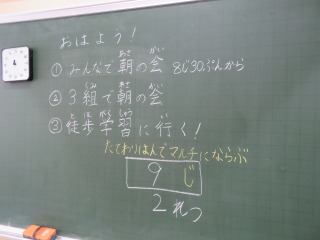 おはよう！
①みんなで朝の会 8じ30ぷんから
②3組で朝の会
③徒歩学習に行く！
たてわりはんでマルチにならぶ
9じ
2れつ